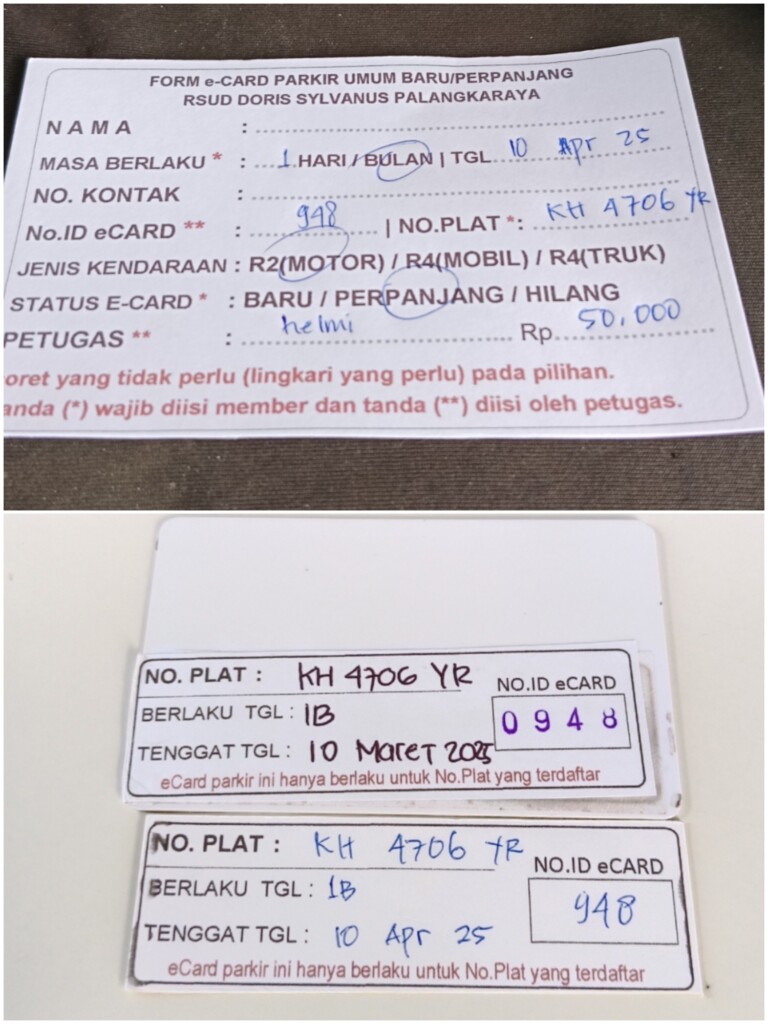 FORM e-CARD PARKIR UMUM BARU/PERPANJANG
RSUD DORIS SYLVANUS PALANGKARAYA
N A M A :
MASA BERLAKU * : 1 HARI / BULAN | TGL 10 Apr 25
NO. KONTAK :
No.ID eCARD ** : 948 | NO.PLAT *: KH 4706 YR
JENIS KENDARAAN : R2(MOTOR) / R4(MOBIL) / R4(TRUK)
STATUS E-CARD * : BARU / PERPANJANG / HILANG
PETUGAS ** : helmi Rp. 50.000
oret yang tidak perlu (lingkari yang perlu) pada pilihan.
anda (*) wajib diisi member dan tanda (**) diisi oleh petugas.
NO. PLAT : KH 4706 YR
NO.ID eCARD
BERLAKU TGL : 1B
0948
TENGGAT TGL : 10 Maret 2025
eCard parkir ini hanya berlaku untuk No.Plat yang terdaftar
NO. PLAT : KH 4706 YR
NO.ID eCARD
BERLAKU TGL : 1B
948
TENGGAT TGL : 10 Apr 25
eCard parkir ini hanya berlaku untuk No.Plat yang terdaftar